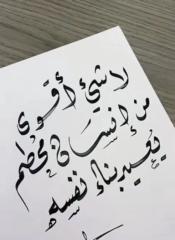 لا شيء أقوى
من إنسان محطم
يعيد بناء نفسه